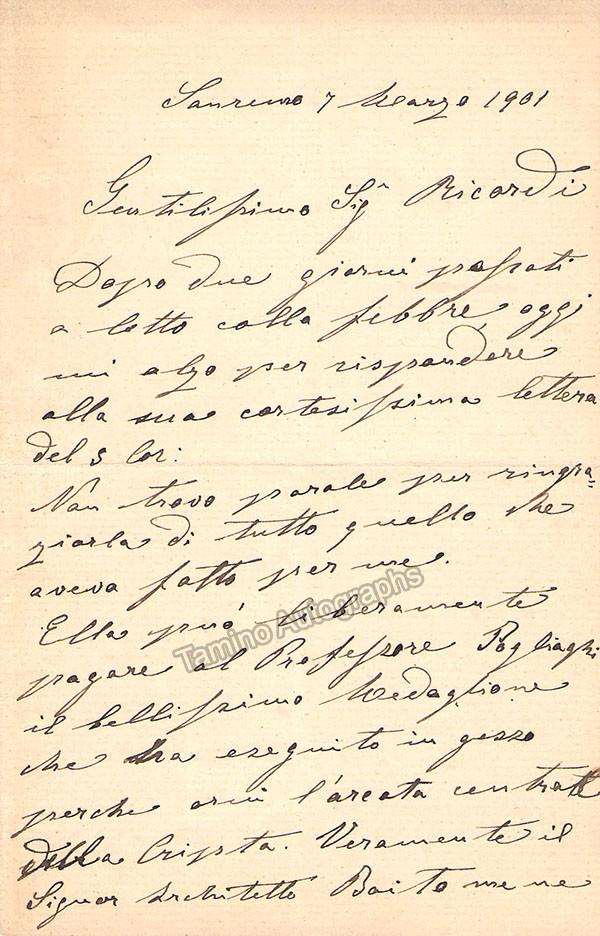 Sanremo 7 Marzo 1901
Gentilissimo Sigr Ricordi
Dopo due giorni passati
a letto colla febbre, oggi
mi alzo per rispondere
alla sua cortesissima lettera
del 5 cor:
Non trovo parole per ringra=
ziarla di tutto quello che
aveva fatto per me.
Ella può liberamente
pagare al Professore Pogliaghi
il bellissimo Medaglione
che ha eseguito in gesso
perche orni l'arcata centrale
della Cripta. Veramente il
Signor Architetto Boito me ne
Tamino Autographs